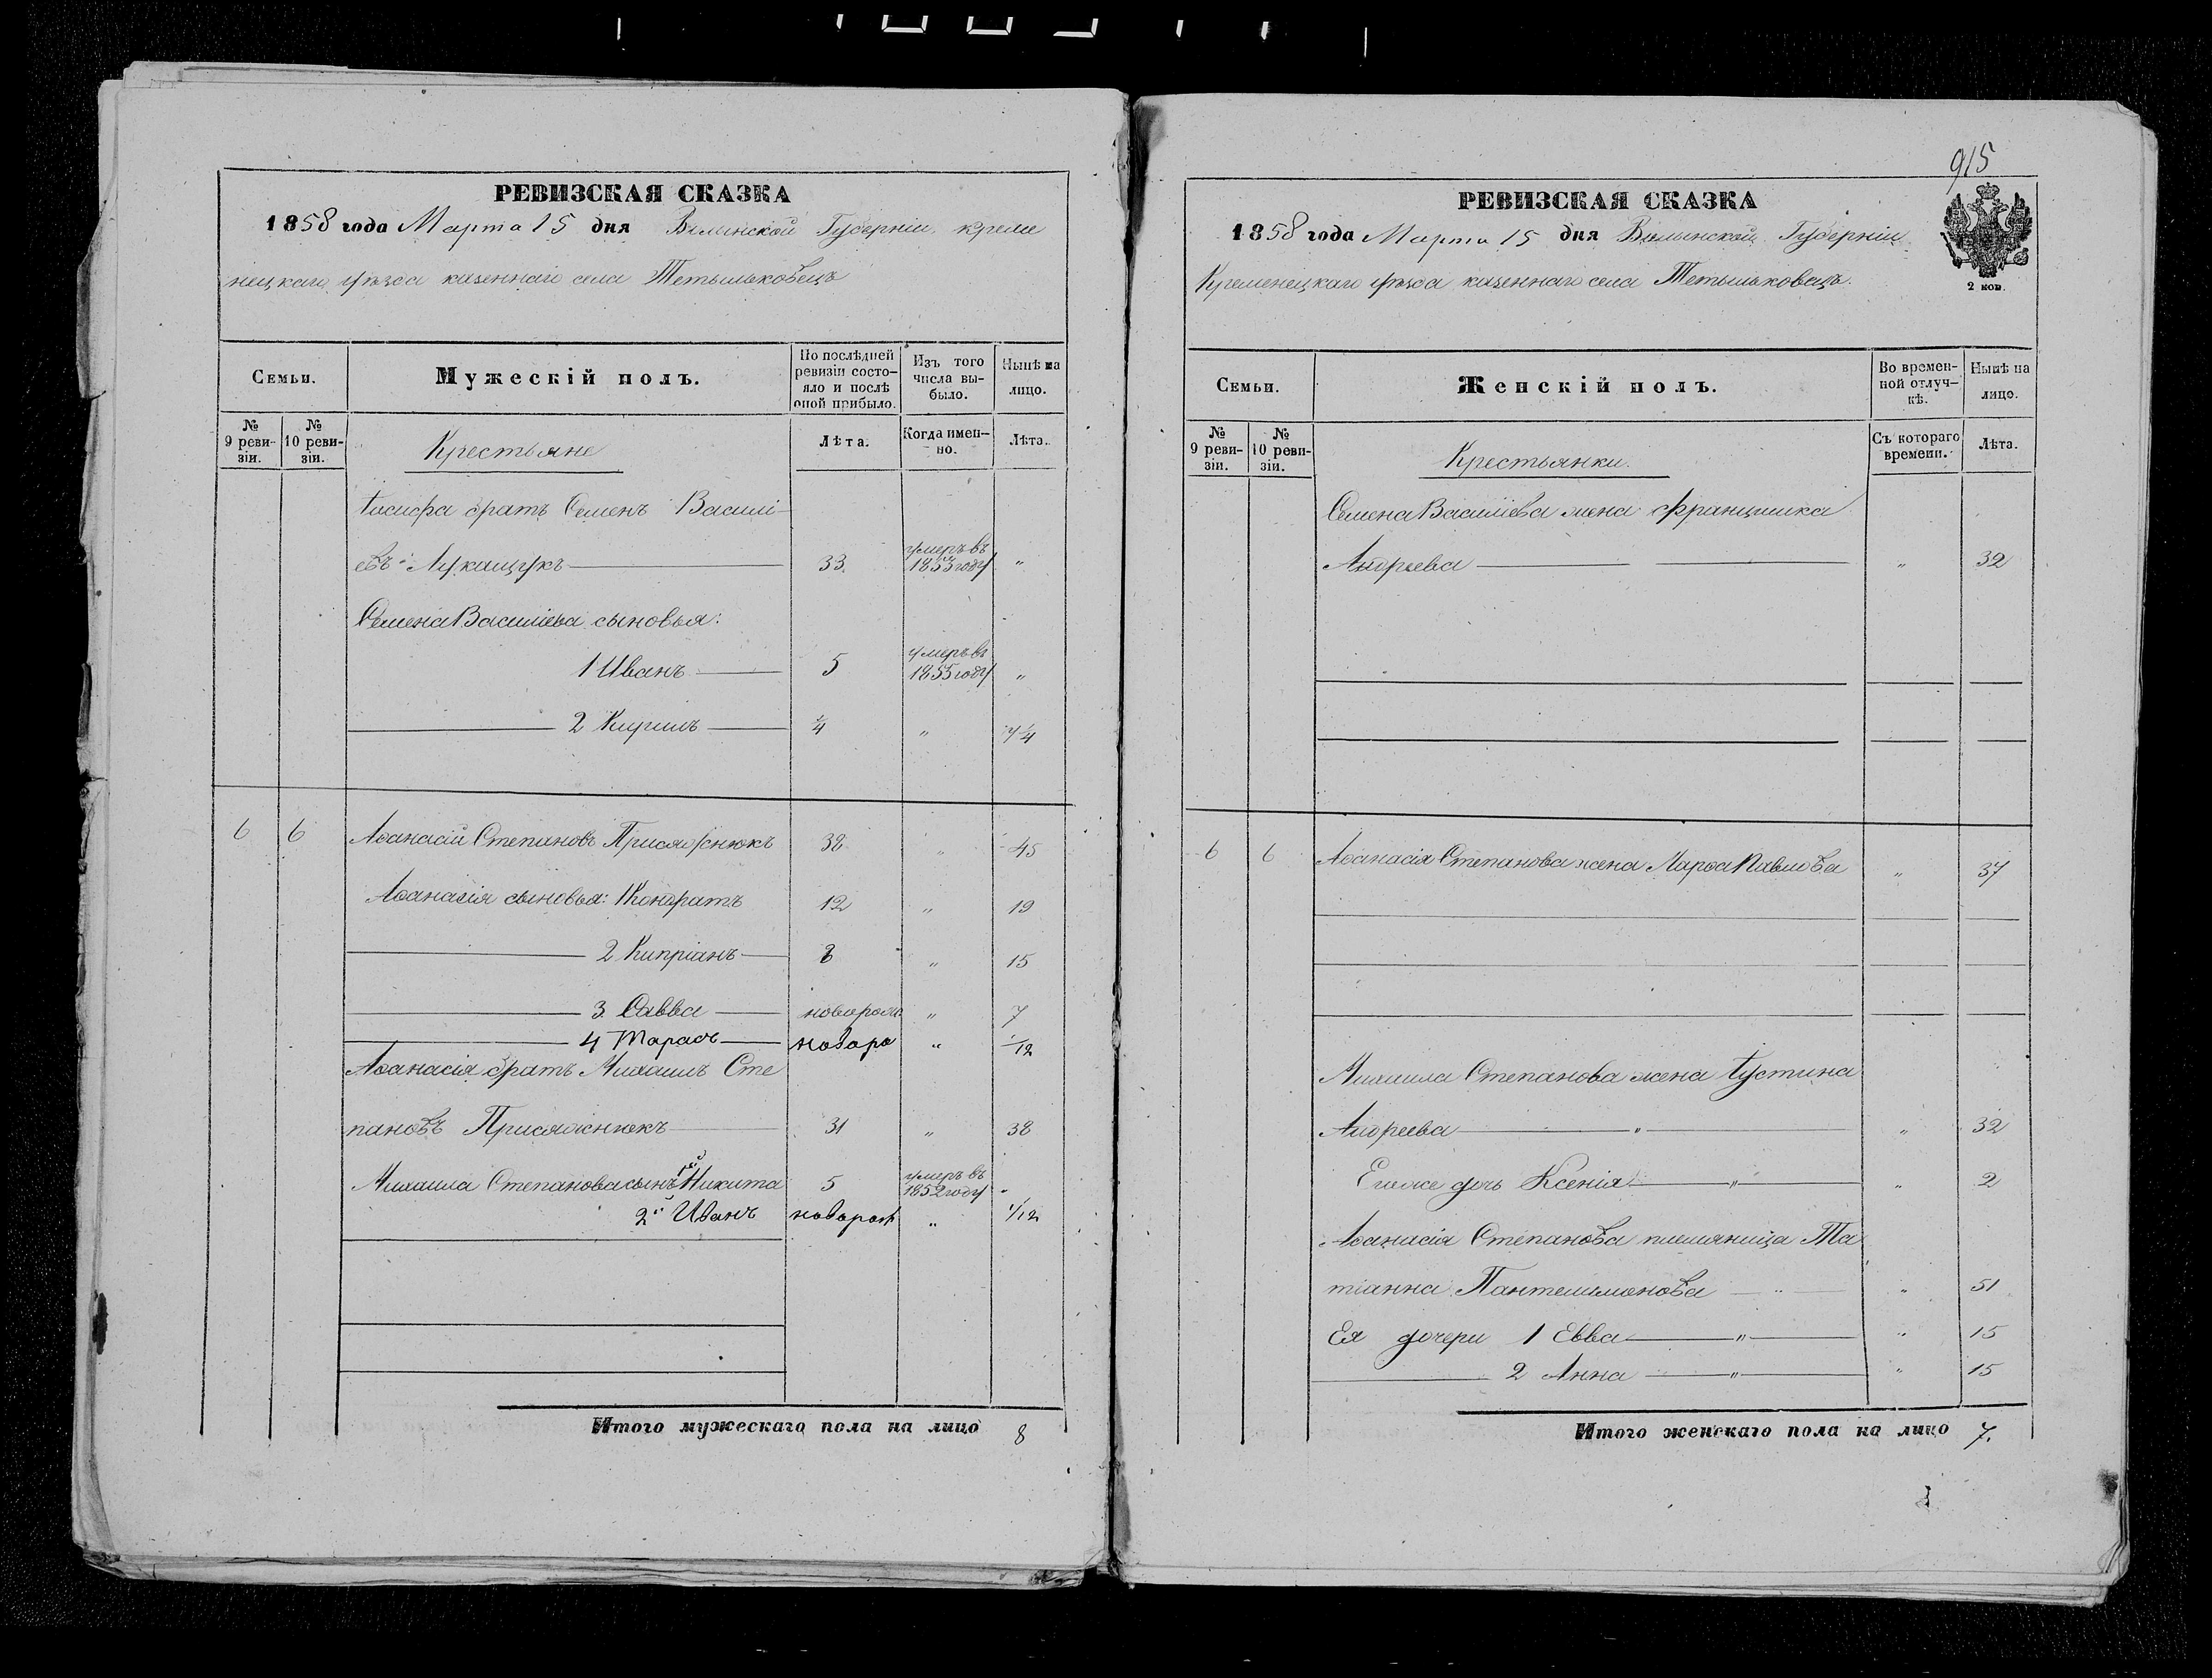 РЕВИЗСКАЯ СКАЗКА
1858 года Марта 15 дня Волынской Губерніи Креме
нецкаго уѣзда казеннаго села Тетыльковецъ
Семьи.
Мужескій полъ.
По послѣдней ревизіи состояло и послѣ оной прибыло.
Изъ того числа выбыло.
Нынѣ на лицо.
№ 9 ревизіи.
№ 10 ревизіи.
Крестьяне
Лѣта.
Когда именно.
Лѣта.
Іосифа братъ Семенъ Василі-
евъ Лукащукъ 33. умеръ въ 1853 году "
Семена Василіева сыновья:
1 Иванъ 5 умеръ въ 1855 году "
2 Кирилъ ¼ " 7¼
6 6 Аѳанасій Степановъ Присяжнюкъ 38 " 45
Аѳанасія сыновья: 1 Кондратъ 12 " 19
2 Кипріанъ 8 " 15
3 Савва новорож. " 7
4 Тарасъ новоро " 1/12
Аѳанасія братъ Михаилъ Сте
пановъ Присяжнюкъ 31 " 38
Михаила Степанова сынъ 1й Никита 5 умеръ въ 1852 году "
2й Иванъ новорож " 1/12
Итого мужескаго пола на лицо 8
915
РЕВИЗСКАЯ СКАЗКА
1858 года Марта 15 дня Волынской Губерніи
Кременецкаго уѣзда казеннаго села Тетыльковецъ.
2 коп.
Семьи.
Женскій полъ.
Во временной отлучкѣ.
Нынѣ на лицо.
№ 9 ревизіи.
№ 10 ревизіи.
Крестьянки.
Съ котораго времени.
Лѣта.
Семена Василіева жена Францишка
Андреева " 32
6 6 Аѳанасія Степанова жена Марѳа Павлова " 37
Михаила Степанова жена Іустина
Андреева " " 32
Егоже дочь Ксенія " " 2
Аѳанасія Степанова племяница Та
тіанна Пантелимонова " " 51
Ея дочери 1 Евва " " 15
2 Анна " " 15
Итого женскаго пола на лицо 7.